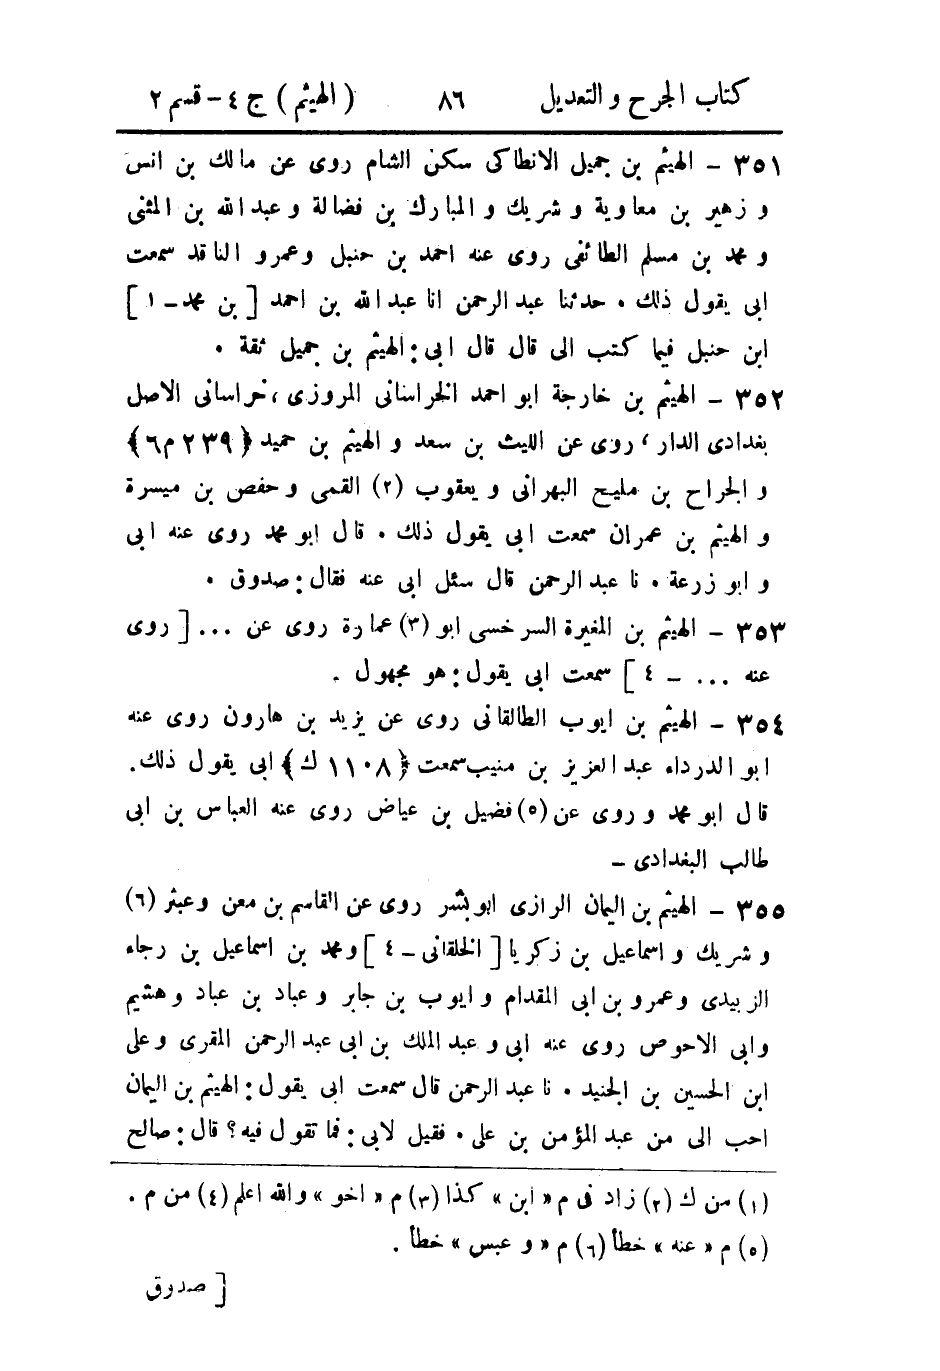 كتاب الجرح والتعديل ٨٦ (الهيثم) ج ٤ - قسم ٢
٣٥١ - الهيثم بن جميل الانطاكى سكن الشام روى عن مالك بن انس
و زهير بن معاوية و شريك و المبارك بن فضالة و عبد الله بن المثنى
و محمد بن مسلم الطائفى روى عنه احمد بن حنبل وعمرو الناقد سمعت
ابى يقول ذلك . حدثنا عبد الرحمن انا عبد الله بن احمد [ بن محمد - ١ ]
ابن حنبل فيما كتب الى قال قال ابى : الهيثم بن جميل ثقة .
٣٥٢ - الهيثم بن خارجة ابو احمد الخراسانى المروزى ، خراسانى الاصل
بغدادى الدار ، روى عن الليث بن سعد و الهيثم بن حميد ﴿ ٢٣٩ م ٦ ﴾
و الجراح بن مليح البهرانى و يعقوب (٢) القمى و حفص بن ميسرة
و الهيثم بن عمران سمعت ابى يقول ذلك . قال ابو محمد روى عنه ابى
و ابو زرعة . نا عبد الرحمن قال سئل ابى عنه فقال : صدوق .
٣٥٣ - الهيثم بن المغيرة السرخسى ابو (٣) عمارة روى عن ... [ روى
عنه ... - ٤ ] سمعت ابى يقول : هو مجهول .
٣٥٤ - الهيثم بن ايوب الطالقانى روى عن يزيد بن هارون روى عنه
ابو الدرداء عبد العزيز بن منيب سمعت ﴿ ١١٠٨ ك ﴾ ابى يقول ذلك .
قال ابو محمد و روى عن (٥) فضيل بن عياض روى عنه العباس بن ابى
طالب البغدادى -
٣٥٥ - الهيثم بن اليمان الرازى ابو بشر روى عن القاسم بن معن وعبثر (٦)
و شريك و اسماعيل بن زكريا [ الخلقانى - ٤ ] و محمد بن اسماعيل بن رجاء
الزبيدى وعمرو بن ابى المقدام و ايوب بن جابر و عباد بن عباد و هشيم
وابى الاحوص روى عنه ابى و عبد الملك بن ابى عبد الرحمن المقرى و على
ابن الحسين بن الجنيد . نا عبد الرحمن قال سمعت ابى يقول : الهيثم بن اليمان
احب الى من عبد المؤمن بن على . فقيل لابى : فما تقول فيه ؟ قال : صالح
(١) من ك (٢) زاد فى م « ابن » كذا (٣) م « اخو » والله اعلم (٤) من م .
(٥) م « عنه » خطأ (٦) م « و عبس » خطأ .
[ صدوق